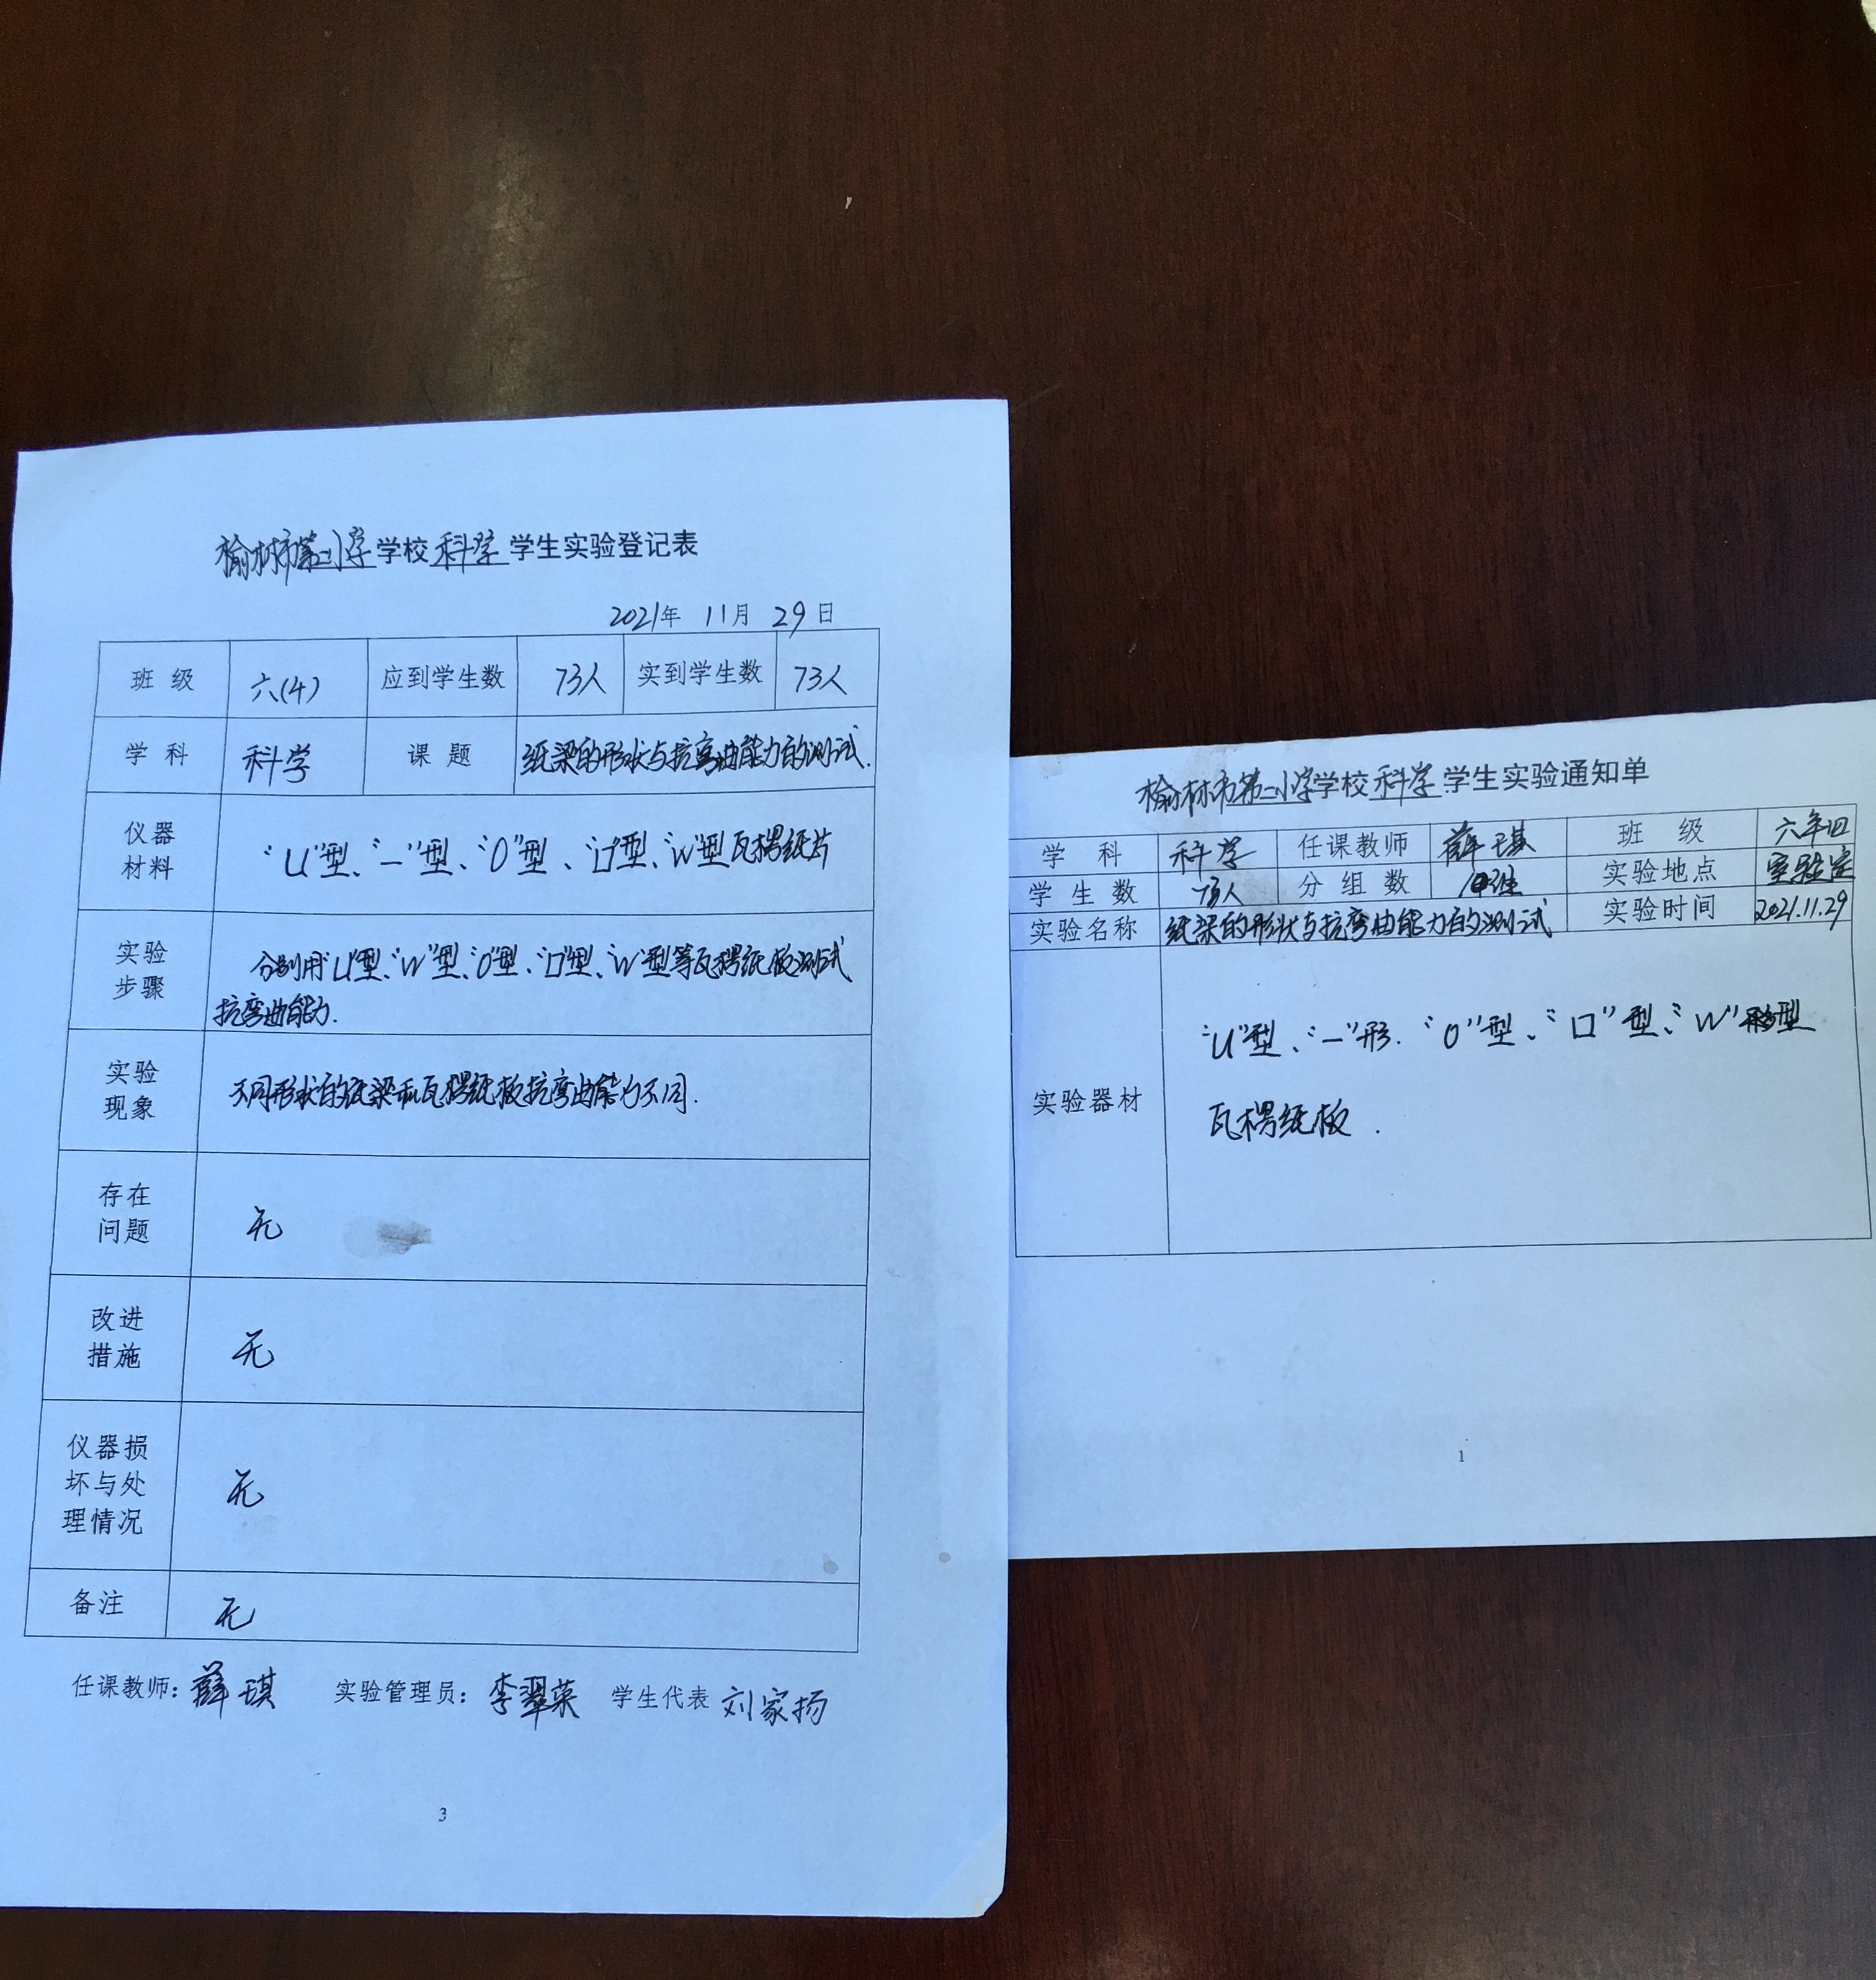 榆林市第二小学学校科学学生实验登记表
2021年 11月 29日
班 级 六(4) 应到学生数 73人 实到学生数 73人
学 科 科学 课 题 纸梁的形状与抗弯曲能力的测试.
仪器
材料
“U”型、“一”型、“O”型、“口”型、“W”型瓦楞纸片
实验
步骤
分别用“U”型、“W”型、“O”型、“口”型、“W”型等瓦楞纸板测试
抗弯曲能力.
实验
现象
不同形状的纸梁和瓦楞纸板抗弯曲能力不同.
存在
问题
无
改进
措施
无
仪器损
坏与处
理情况
无
备注
无
任课教师:薛琪 实验管理员:李翠荣 学生代表 刘家扬
3
榆林市第二小学学校科学学生实验通知单
学 科 科学 任课教师 薛琪 班 级 六年四
学 生 数 73人 分 组 数 实验地点 实验室
实验名称 纸梁的形状与抗弯曲能力的测试 实验时间 2021.11.29
实验器材
“U”型、“一”形.“O”型、“口”型、“W”型
瓦楞纸板.
1